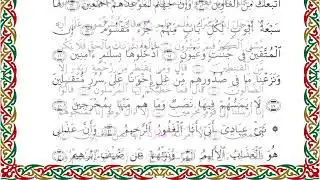 اتبعك من الغاوين ۝ وإن جهنم لموعدهم أجمعين ۝ لها
سبعة أبواب لكل باب منهم جزء مقسوم ۝ إن
المتقين في جنت وعيون ۝ ادخلوها بسلم ءامنين ۝
ونزعنا ما في صدورهم من غل إخونا على سرر متقبلين
لا يمسهم فيها نصب وما هم منها بمخرجين ۝
نبئ عبادي أني أنا الغفور الرحيم ۝ وأن عذابي
هو العذاب الأليم ۝ ونبئهم عن ضيف إبرهيم ۝